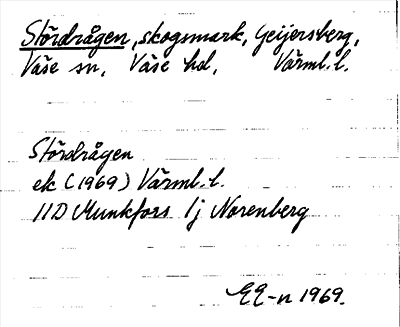 Stördrågen, skogsmark, Geijersberg,
Väse sn, Väse hd, Värml. l.
Stördrågen
ek (1969) Värml. l.
11D Munkfors 1j Norenberg
EE-n 1969.